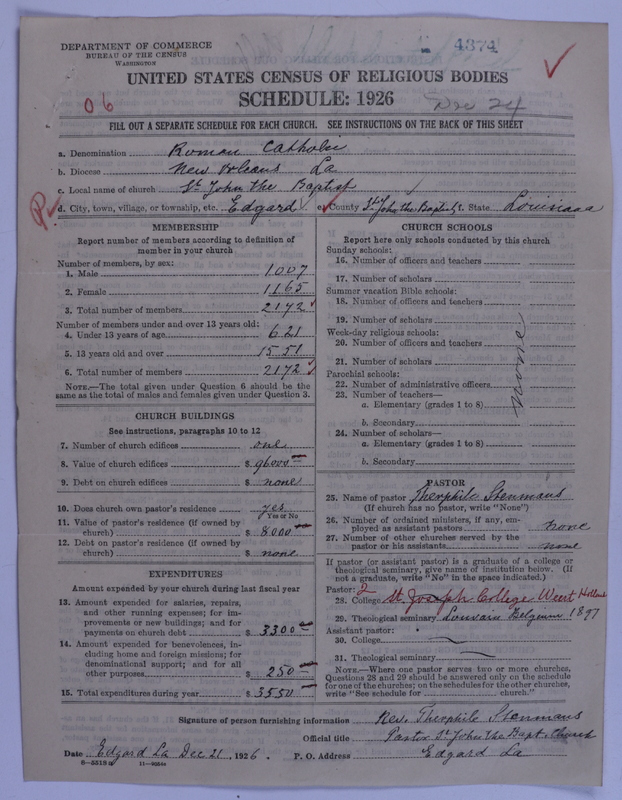 4374
DEPARTMENT OF COMMERCE
BUREAU OF THE CENSUS
WASHINGTON
UNITED STATES CENSUS OF RELIGIOUS BODIES
SCHEDULE: 1926
06
Dec 24
FILL OUT A SEPARATE SCHEDULE FOR EACH CHURCH. SEE INSTRUCTIONS ON THE BACK OF THIS SHEET
a. Denomination Roman Catholic
b. Diocese New Orleans La
c. Local name of church St John the Baptist
d. City, town, village, or township, etc. Edgard e. County St John the Baptist f. State Louisiana
MEMBERSHIP
Report number of members according to definition of
member in your church
Number of members, by sex:
1. Male 1007
2. Female 1165
3. Total number of members 2172
Number of members under and over 13 years old:
4. Under 13 years of age 621
5. 13 years old and over 1551
6. Total number of members 2172
NOTE.—The total given under Question 6 should be the
same as the total of males and females given under Question 3.
CHURCH BUILDINGS
See instructions, paragraphs 10 to 12
7. Number of church edifices one
8. Value of church edifices $ 96000
9. Debt on church edifices $ none
10. Does church own pastor's residence yes
Yes or No
11. Value of pastor's residence (if owned by
church) $ 8000
12. Debt on pastor's residence (if owned by
church) $ none
EXPENDITURES
Amount expended by your church during last fiscal year
13. Amount expended for salaries, repairs,
and other running expense; for im-
provements or new buildings; and for
payments on church debt $ 3300
14. Amount expended for benevolences, in-
cluding home and foreign missions; for
denominational support; and for all
other purposes $ 250
15. Total expenditures during year $ 3550
CHURCH SCHOOLS
Report here only schools conducted by this church
Sunday schools:
16. Number of officers and teachers
17. Number of scholars
Summer vacation Bible schools:
18. Number of officers and teachers
19. Number of scholars
Week-day religious schools:
20. Number of officers and teachers
21. Number of scholars
Parochial schools:
22. Number of administrative officers
23. Number of teachers—
a. Elementary (grades 1 to 8)
b. Secondary
24. Number of scholars—
a. Elementary (grades 1 to 8)
b. Secondary
none
PASTOR
25. Name of pastor Theophile Stenmans
(If church has no pastor, write "None")
26. Number of ordained ministers, if any, em-
ployed as assistant pastors none
27. Number of other churches served by the
pastor or his assistants none
If pastor (or assistant pastor) is a graduate of a college or
theological seminary, give name of institution below. (If
not a graduate, write "No" in the space indicated.)
Pastor: 2
28. College St Joseph College Weert Holland
29. Theological seminary Louvain Belgium 1897
Assistant pastor:
30. College
31. Theological seminary
NOTE.—Where one pastor serves two or more churches,
Questions 28 and 29 should be answered only on the schedule
for one of the churches; on the schedules for the other churches,
write "See schedule for church."
Signature of person furnishing information Rev. Theophile Stenmans
Official title Pastor St John the Bapt. Church
Date Edgard La Dec 21, 1926. P. O. Address Edgard La